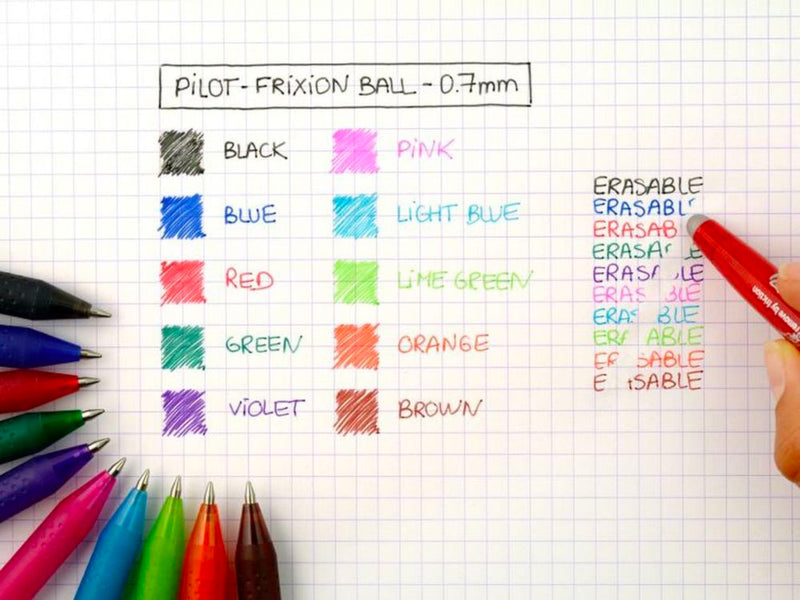 PILOT-FRIXION BALL-0.7mm
BLACK
BLUE
RED
GREEN
VIOLET
PINK
LIGHT BLUE
LIME GREEN
ORANGE
BROWN
ERASABLE
ERASABL
ERASAB
ERASA E
ERAS LE
ERAS BLE
ERAS BLE
ER ABLE
ER SABLE
E SABLE
remove by friction